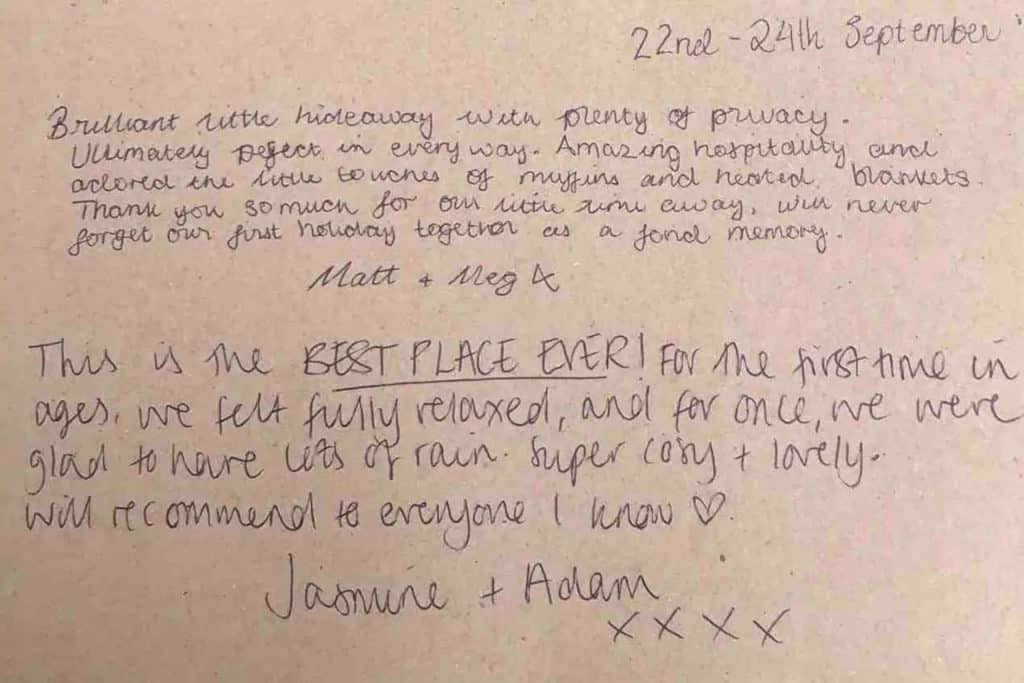 22nd - 24th September
Brilliant little hideaway with plenty of privacy.
Ultimately pefect in every way. Amazing hospitality and
adored the little touches of muffins and heated blankets.
Thank you so much for our little time away, will never
forget our first holiday together as a fond memory.
Matt + Meg x
This is the BEST PLACE EVER! For the first time in
ages, we felt fully relaxed, and for once, we were
glad to have lots of rain. Super cosy + lovely.
Will recommend to everyone I know ♡.
Jasmine + Adam
xxxx